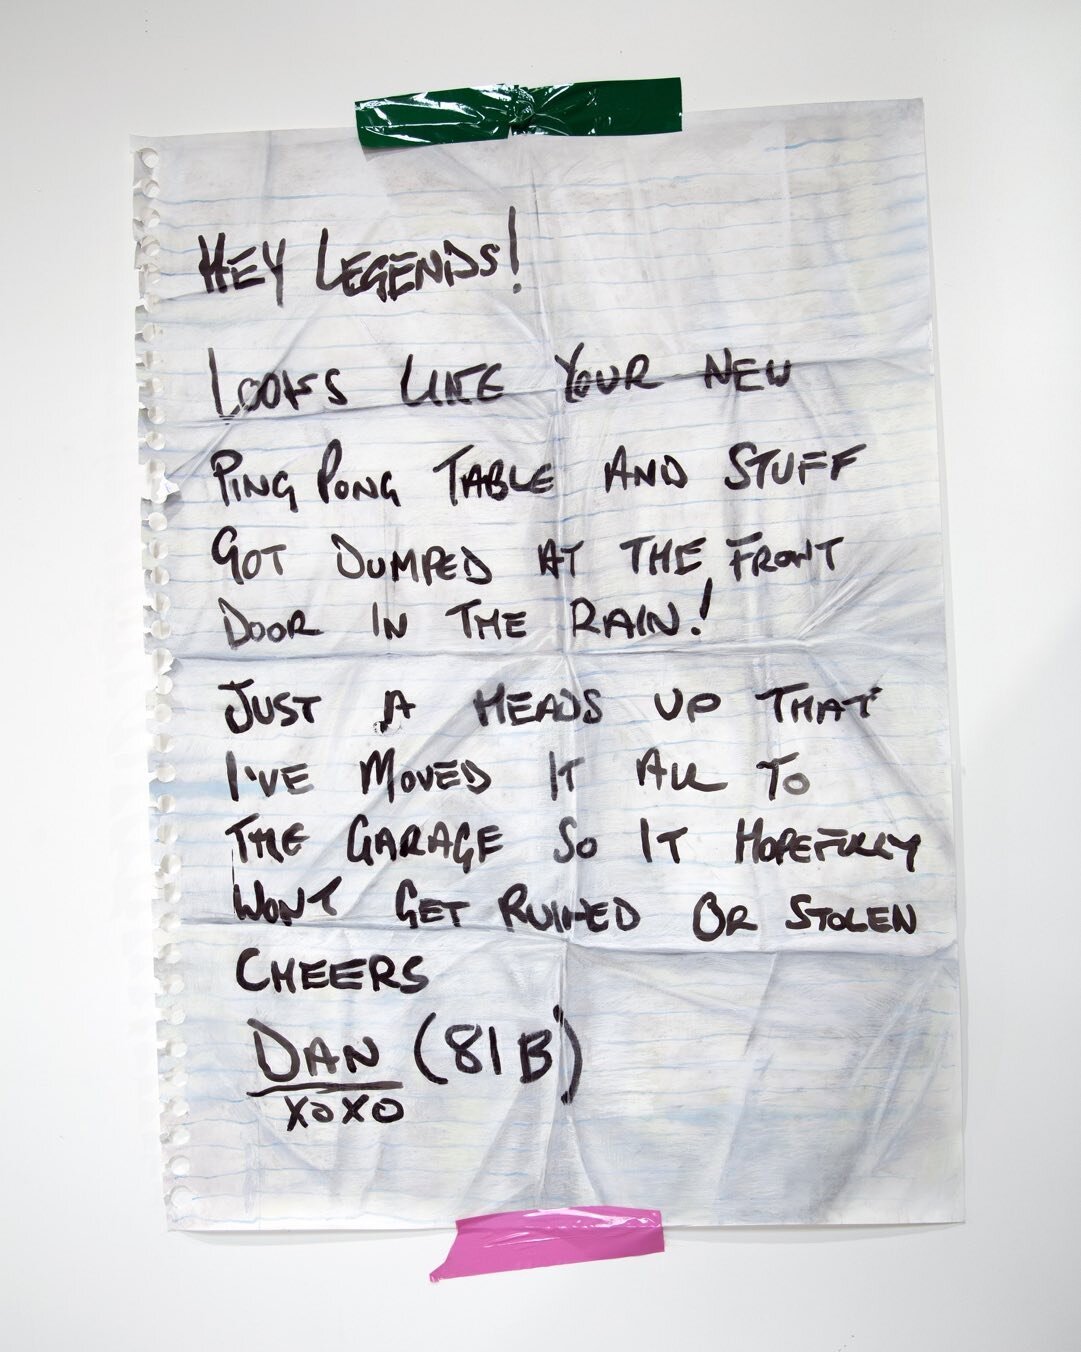 HEY LEGENDS!
LOOKS LIKE YOUR NEW
PING PONG TABLE AND STUFF
GOT DUMPED AT THE FRONT
DOOR IN THE RAIN!
JUST A HEADS UP THAT
I'VE MOVED IT ALL TO
THE GARAGE SO IT HOPEFULLY
WONT GET RUINED OR STOLEN
CHEERS
DAN (81B)
XOXO